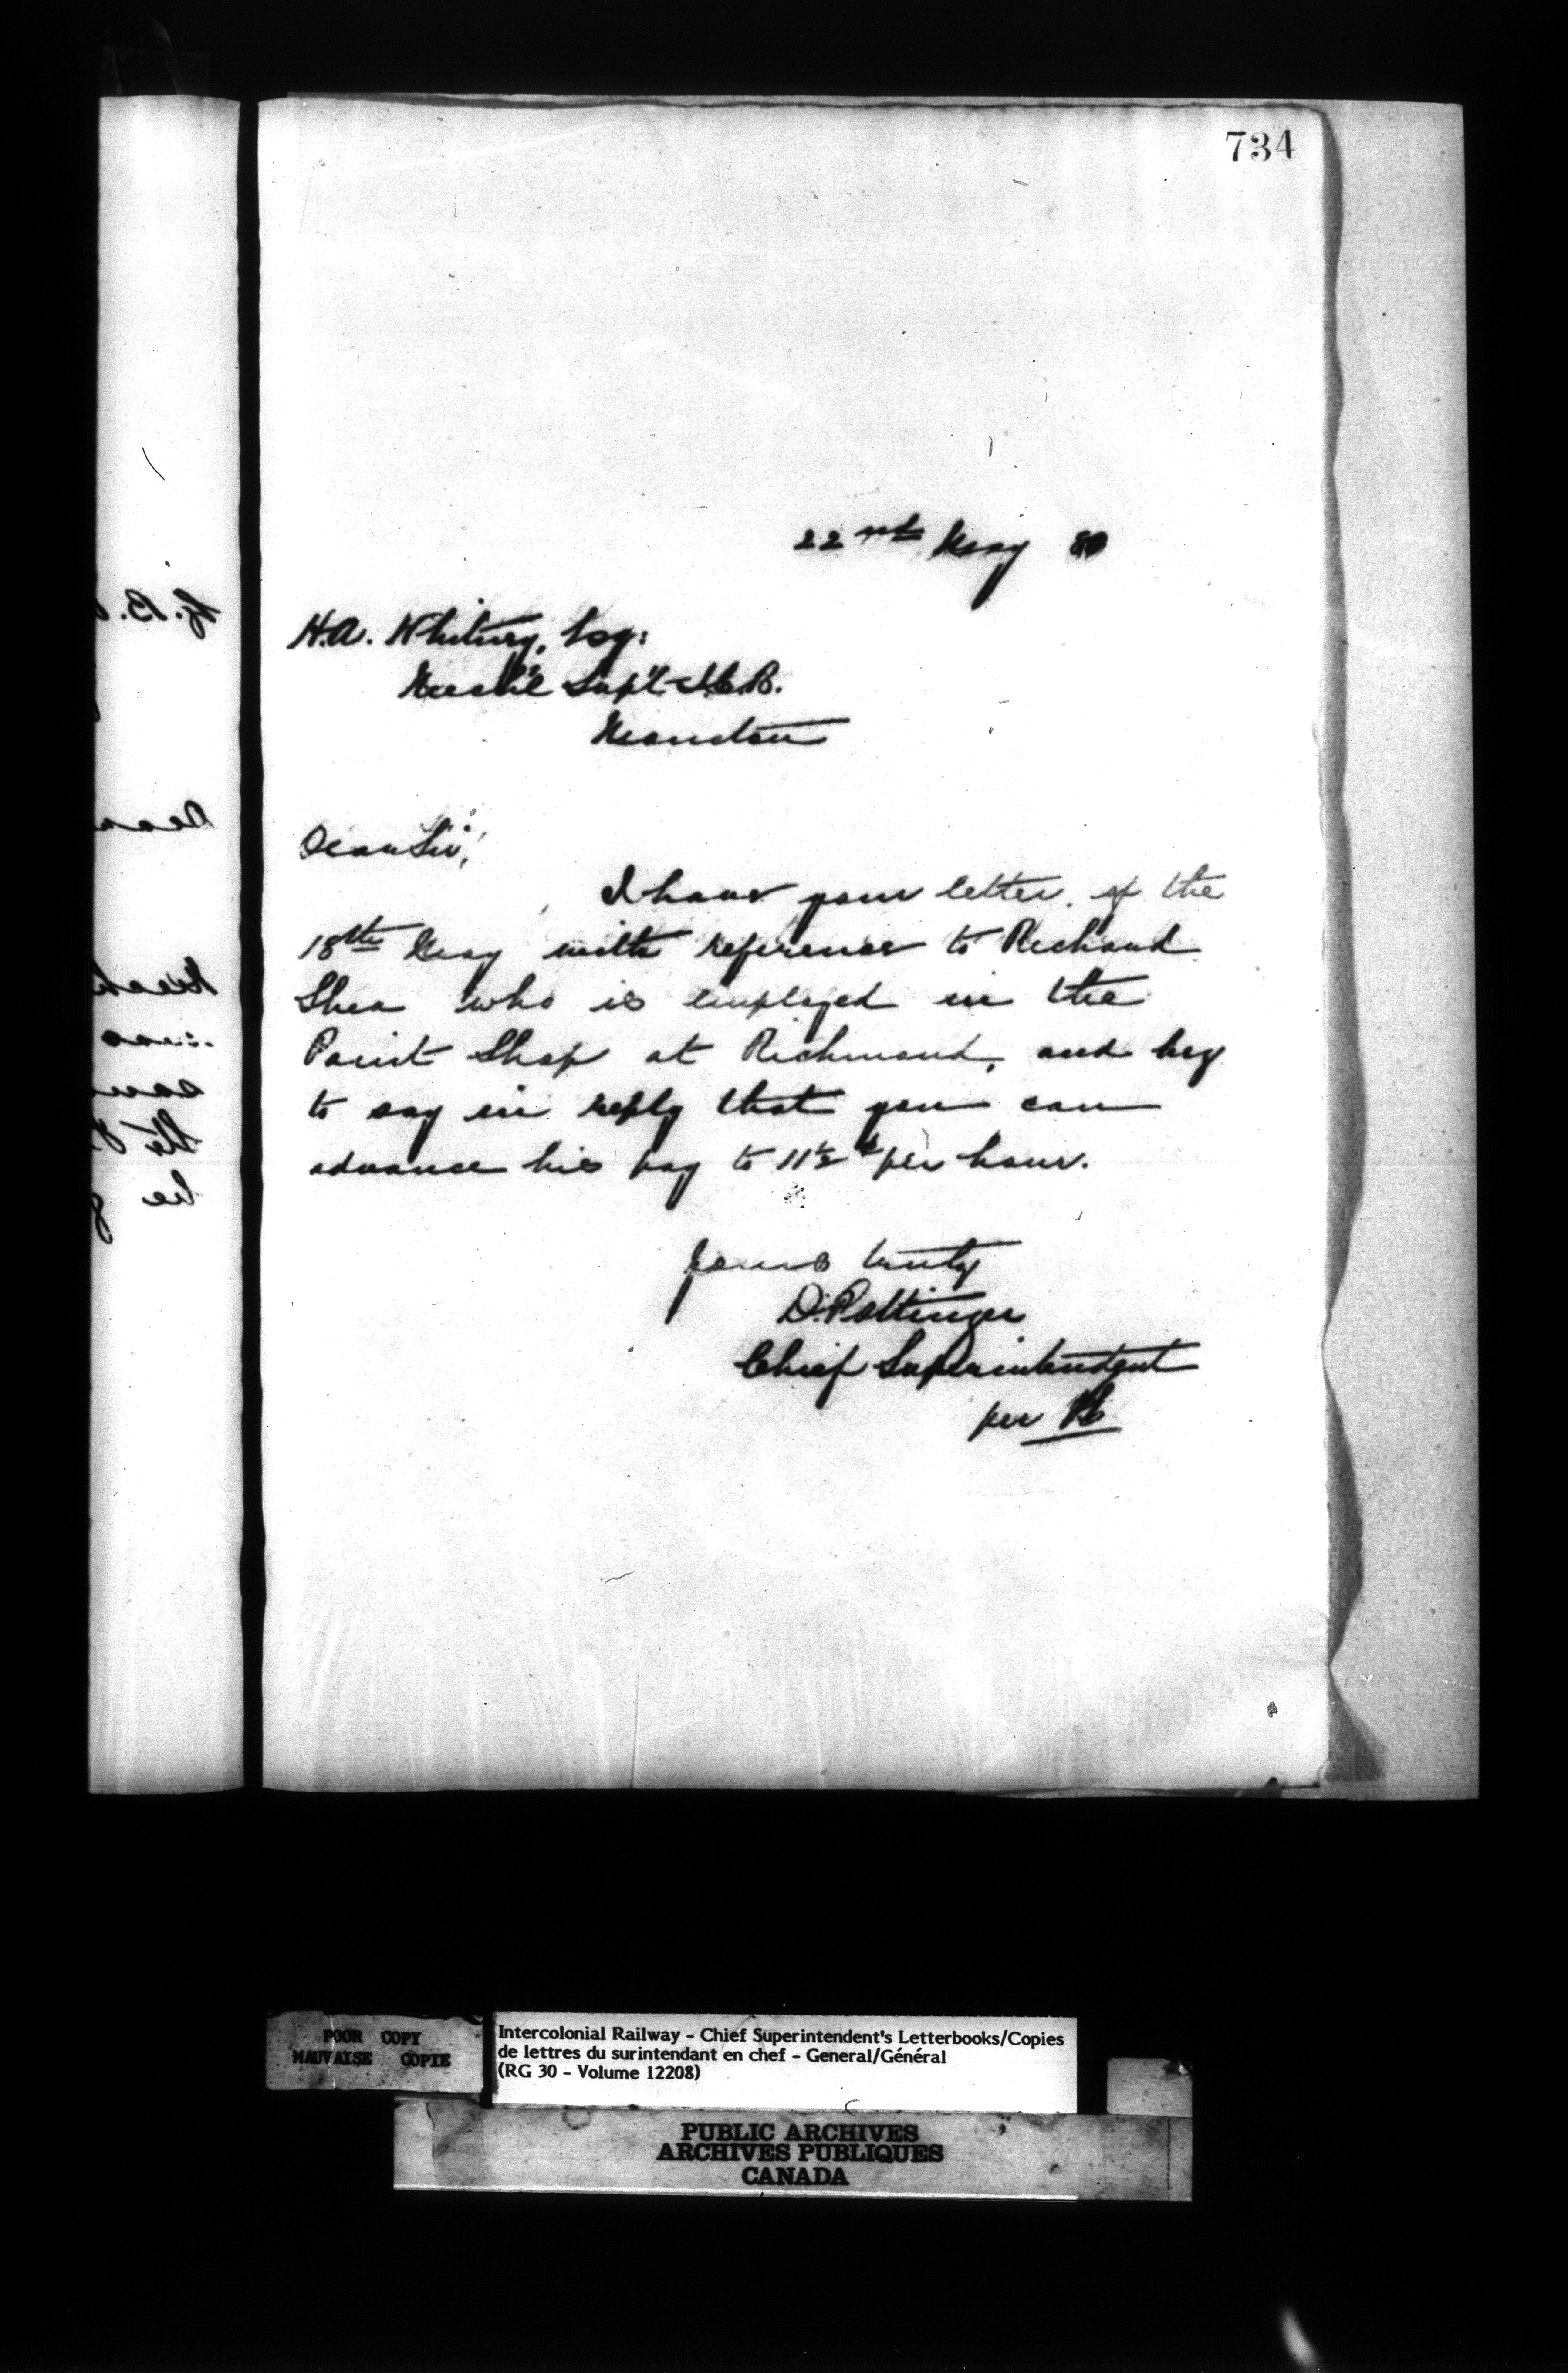 734
22nd May 80
H.A. Whitney, Esq:
Mech'l Sup't I.C.R.
Moncton
Dear Sir,
I have your letter of the
18th May with reference to Richard
Shea who is employed in the
Paint Shop at Richmond, and beg
to say in reply that you can
advance his pay to 11½ per hour.
Yours truly
D. Pottinger
Chief Superintendent
per
POOR COPY
MAUVAISE COPIE
Intercolonial Railway - Chief Superintendent's Letterbooks/Copies
de lettres du surintendant en chef - General/Général
(RG 30 - Volume 12208)
PUBLIC ARCHIVES
ARCHIVES PUBLIQUES
CANADA